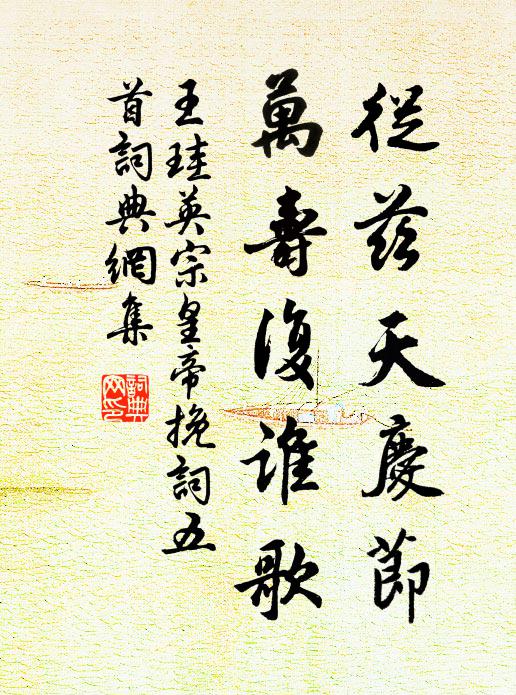 從茲天慶節
萬壽復誰歌
王珪英宗皇帝挽詞五
首詞典網集
詞典
网印